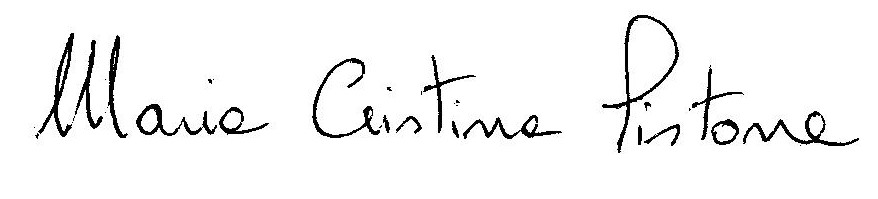 Maria Cristina Pistone